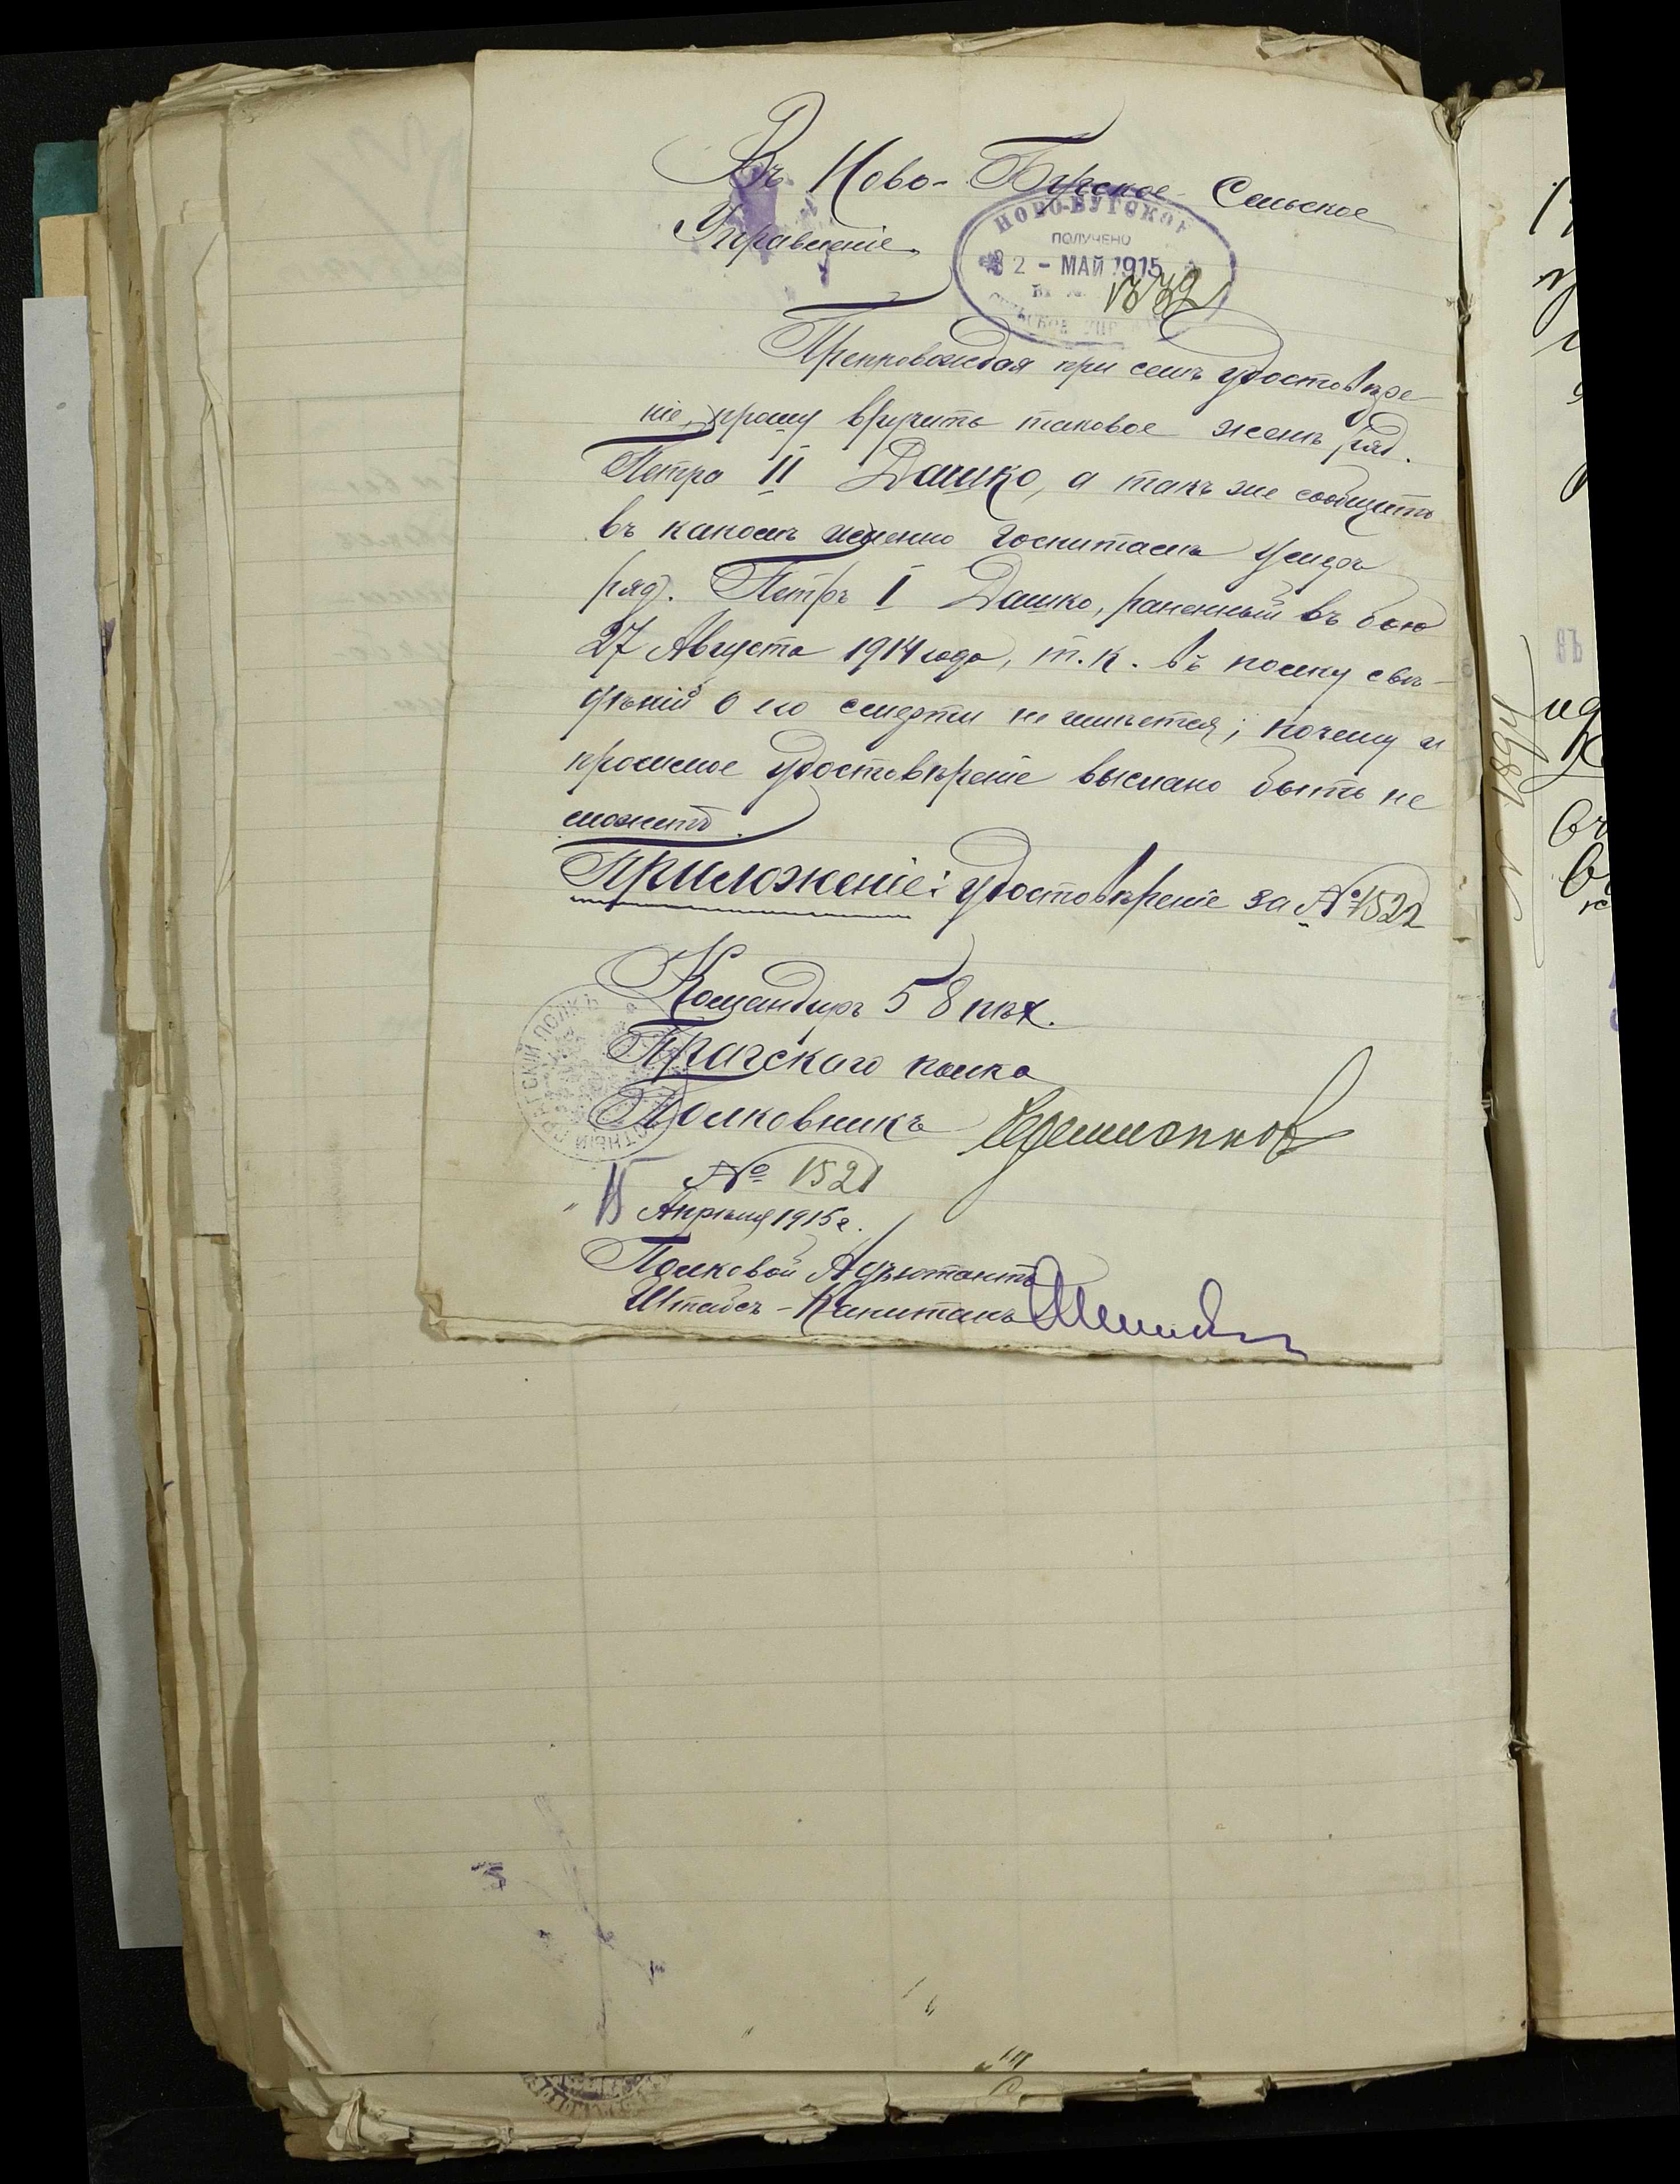 Въ Ново-Бугское Сельское
Управленіе.
НОВО-БУГСКОЕ
ПОЛУЧЕНО
2 - МАЙ 1915
ВХ. №
СЕЛЬСКОЕ УПР
Препровождая при семъ удостовѣре-
ніе, прошу вручить таковое женѣ ряд.
Петра II Дашко, а такъ же сообщить
въ какомъ именно госпиталѣ умеръ
ряд. Петръ I Дашко, раненный въ бою
27 Августа 1914 года, т.к. въ полку свѣ-
дѣній о его смерти не имѣется; почему и
просимое удостовѣреніе выслано быть не
можетъ.
Приложеніе: удостовѣреніе за № 1522
Командиръ 58 пѣх.
Прагскаго полка
Полковникъ
ПРАГСКІЙ ПОЛКЪ
№ 1521
"15 Апрѣля 1915 г.
Полковой Адъютантъ
Штабсъ-Капитанъ